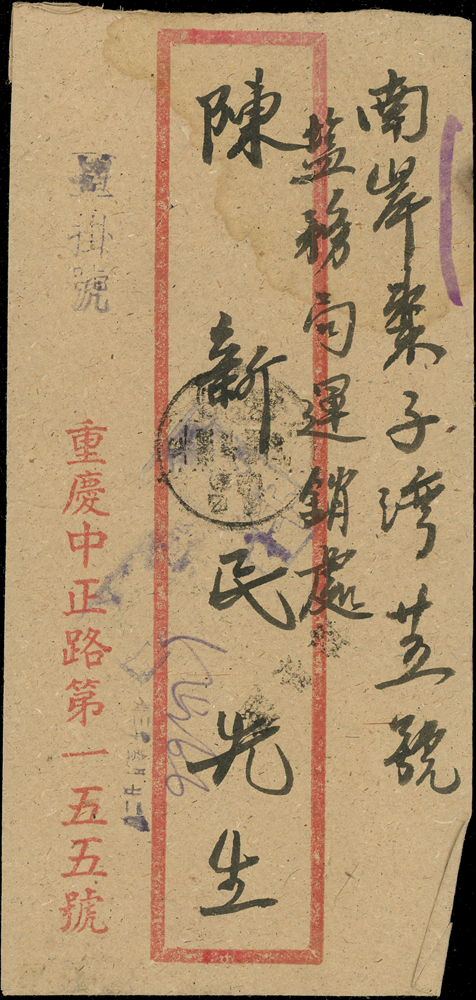 南岸棗子湾廿五號
盐務局運銷處
陳新民先生
掛號
重慶中正路第一五五號